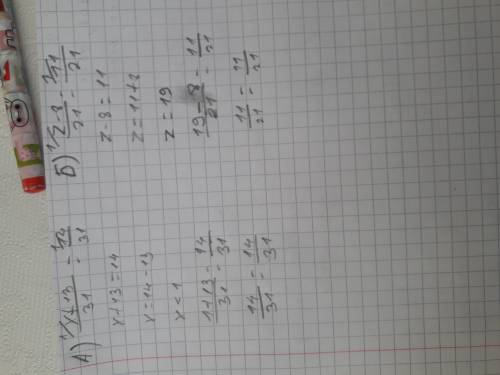 А) x+13/31 = 14/31
x+13=14
x=14-13
x=1
1+13/31 = 14/31
14/31 = 14/31
Б) z-8/21 = 11/21
z-8=11
z=11+8
z=19
19-8/21 = 11/21
11/21 = 11/21